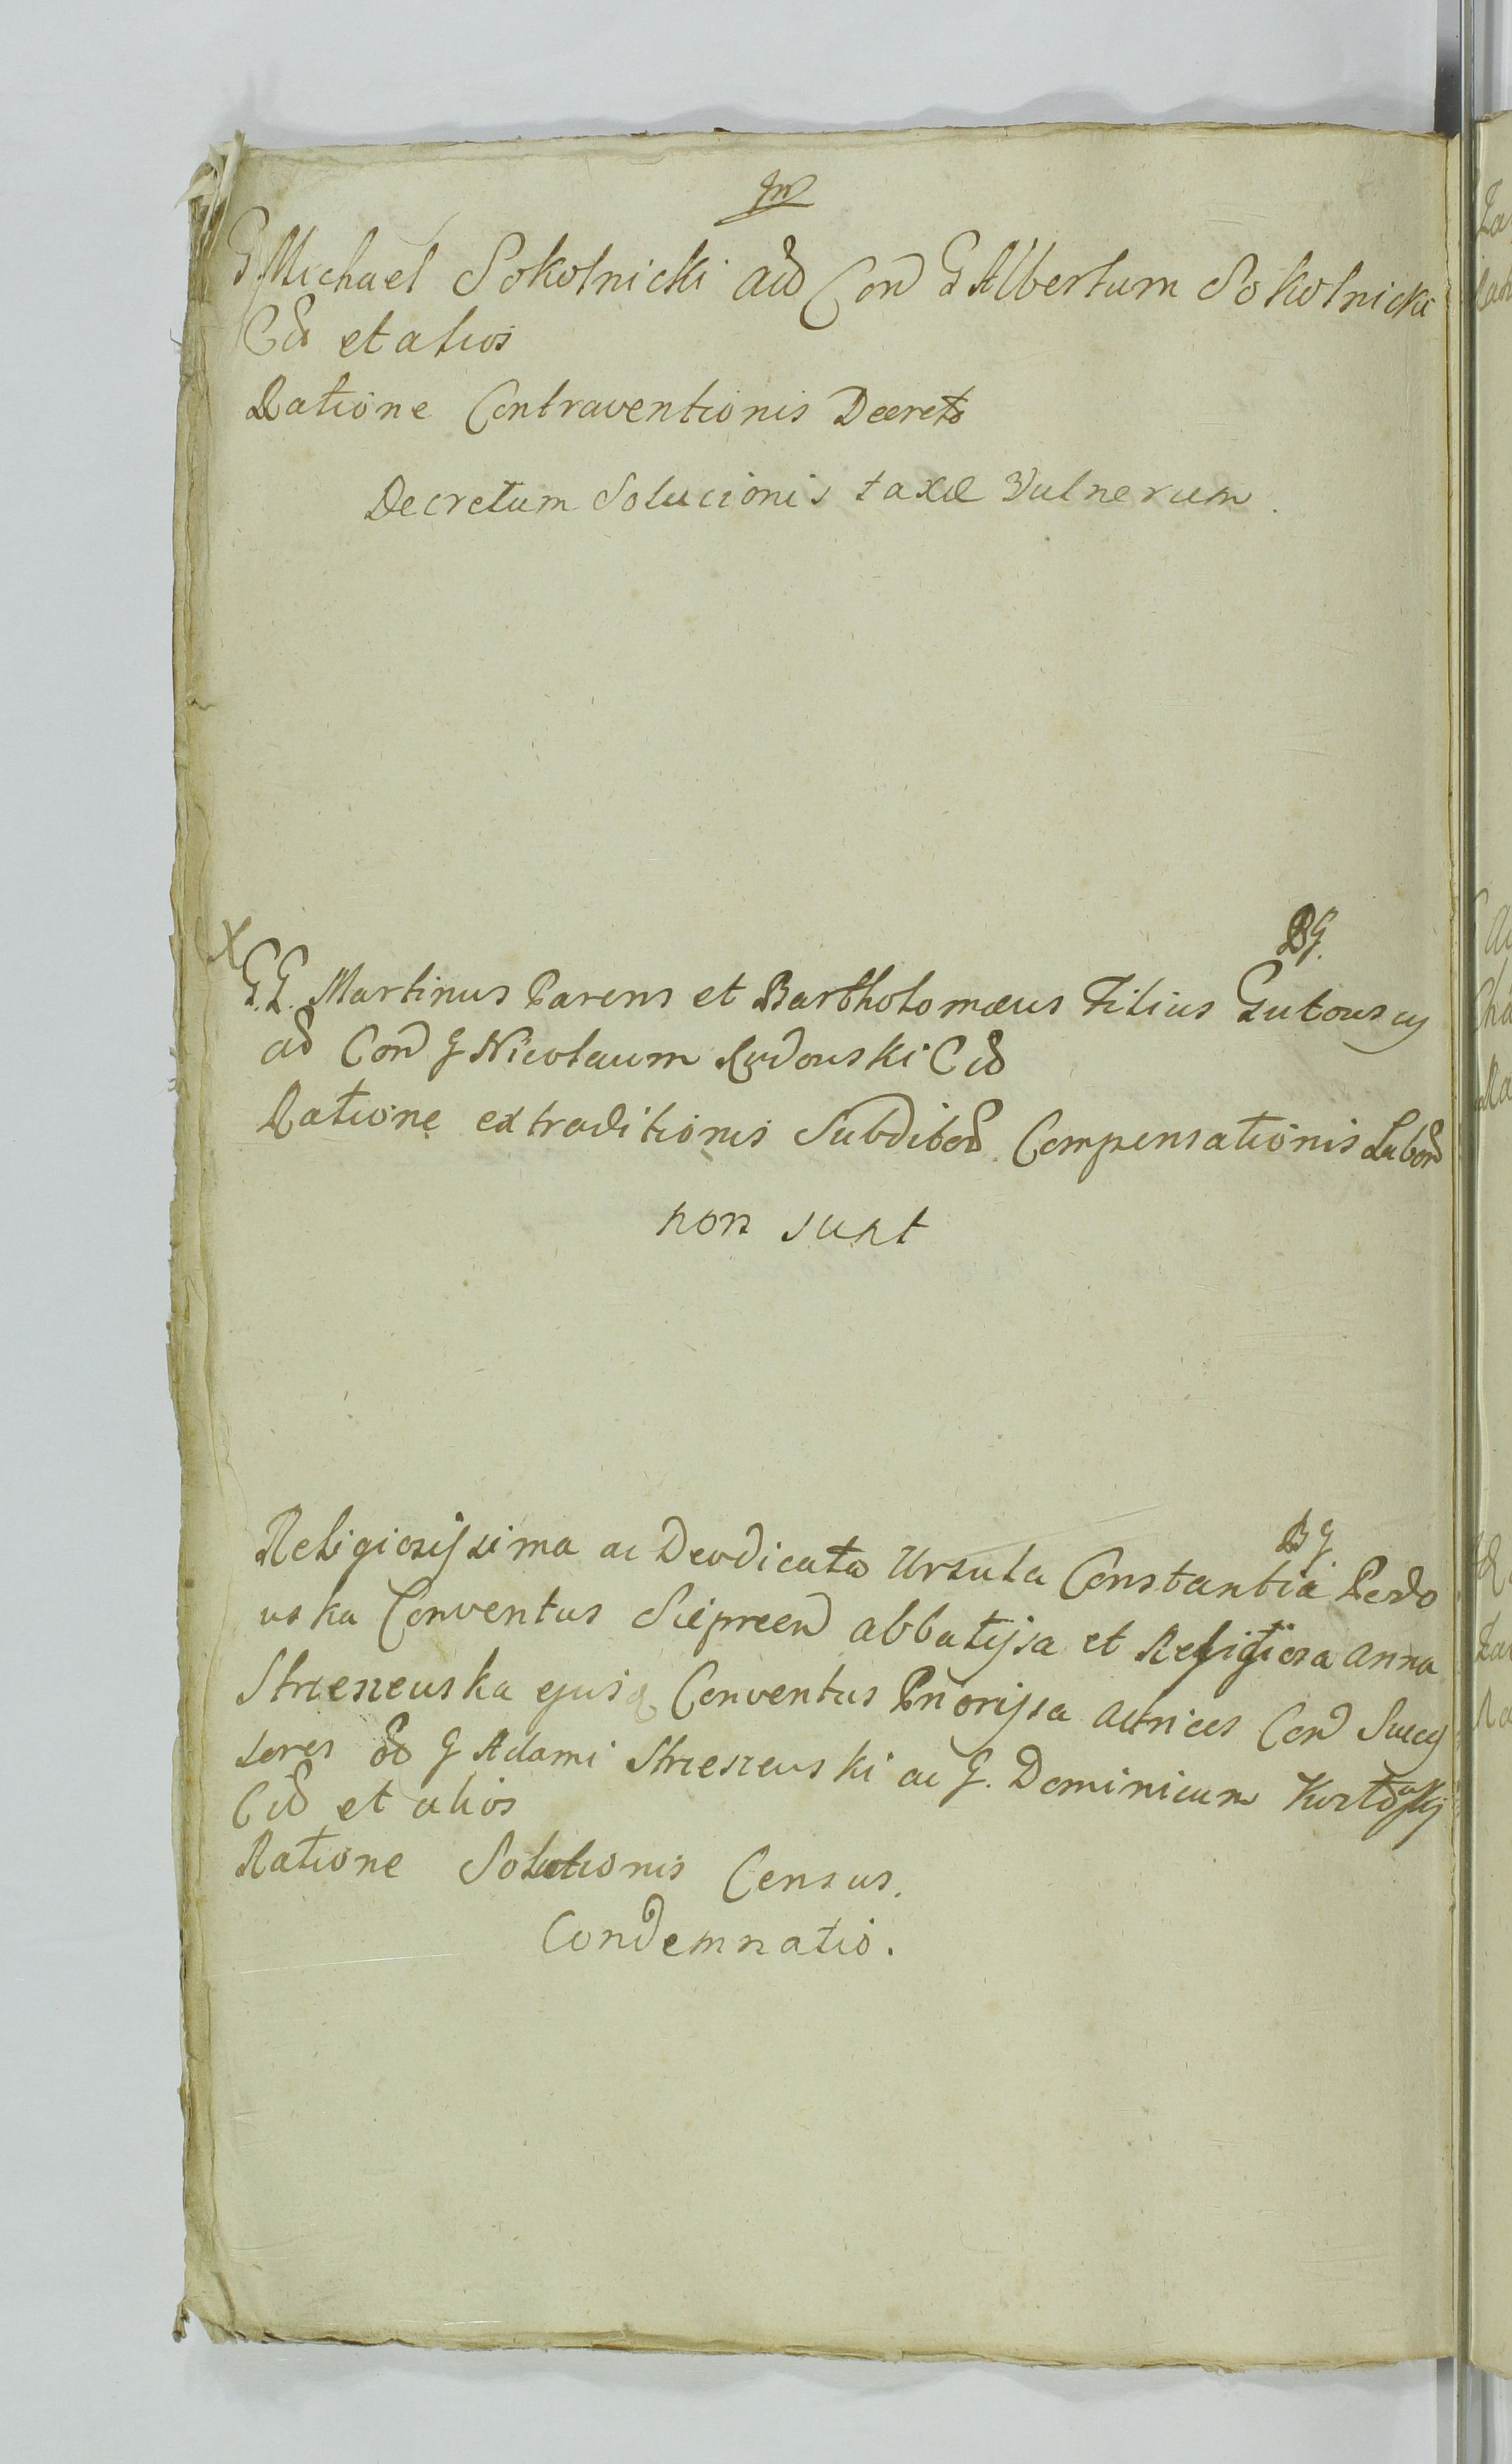 G Michael Sokolnicki ad Con G Albertum Sokolnicki
Cd et alios
Ratione Contraventionis Decreto
Decretum Solucionis taxæ Vulnerum.
BG.
X G.G. Martinus Parens et Bartholomæus Filius Gutouscy
ad Con G Nicolaum Rudouski Cid
Ratione extraditionis Subditod Compensationis Labor
non sunt
BG
Religiosissima ac Deodicata Ursula Constantia Perdo
uska Conventus abbatissa et Religiosa Anna
Strzeszeuska ejusq Conventus Priorissa actrices Con Succes
sores G Adami Strzeszeuski ac G. Dominicum
Cid et alios
Ratione Solutionis Census.
Condemnatio.